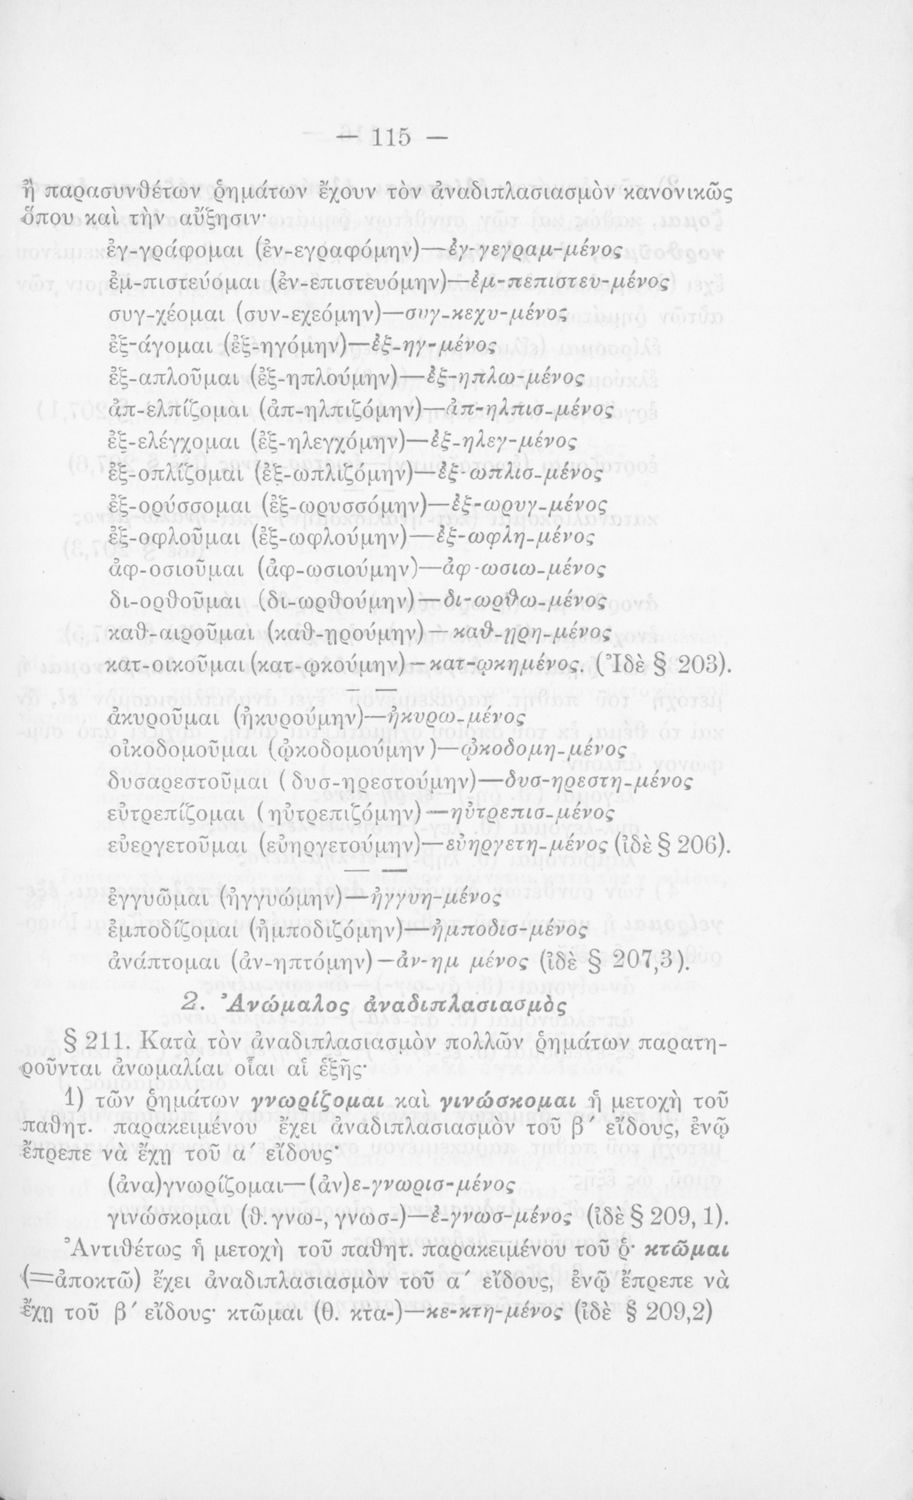 — 115 —
ἢ παρασυνθέτων ῥημάτων ἔχουν τὸν ἀναδιπλασιασμὸν κανονικῶς
ὅπου καὶ τὴν αὔξησιν·
ἐγ-γράφομαι (ἐν-εγραφόμην)—ἐγ-γεγραμ-μένος
ἐμ-πιστεύομαι (ἐν-επιστευόμην)—ἐμ-πεπιστευ-μένος
συγ-χέομαι (συν-εχεόμην)—συγ-κεχυ-μένος
ἐξ-άγομαι (ἐξ-ηγόμην)—ἐξ-ηγ-μένος
ἐξ-απλοῦμαι (ἐξ-ηπλούμην)—ἐξ-ηπλω-μένος
ἀπ-ελπίζομαι (ἀπ-ηλπιζόμην)—ἀπ-ηλπισ-μένος
ἐξ-ελέγχομαι (ἐξ-ηλεγχόμην)—ἐξ-ηλεγ-μένος
ἐξ-οπλίζομαι (ἐξ-ωπλιζόμην)—ἐξ-ωπλισ-μένος
ἐξ-ορύσσομαι (ἐξ-ωρυσσόμην)—ἐξ-ωρυγ-μένος
ἐξ-οφλοῦμαι (ἐξ-ωφλούμην)—ἐξ-ωφλη-μένος
ἀφ-οσιοῦμαι (ἀφ-ωσιούμην)—ἀφ-ωσιω-μένος
δι-ορθοῦμαι (δι-ωρθούμην)—δι-ωρθω-μένος
καθ-αιροῦμαι (καθ-ῃρούμην)—καθ-ῃρη-μένος
κατ-οικοῦμαι (κατ-ῳκούμην)—κατ-ῳκημένος. (Ἰδὲ § 203).
ἀκυροῦμαι (ἠκυρούμην)—ἠκυρω-μένος
οἰκοδομοῦμαι (ᾠκοδομούμην)—ᾠκοδομη-μένος
δυσαρεστοῦμαι (δυσ-ηρεστούμην)—δυσ-ηρεστη-μένος
εὐτρεπίζομαι (ηὐτρεπιζόμην)—ηὐτρεπισ-μένος
εὐεργετοῦμαι (εὐηργετούμην)—εὐηργετη-μένος (ἰδὲ § 206).
ἐγγυῶμαι (ἠγγυώμην)—ἠγγυη-μένος
ἐμποδίζομαι (ἠμποδιζόμην)—ἠμποδισ-μένος
ἀνάπτομαι (ἀν-ηπτόμην)—ἀν-ημ μένος (ἰδὲ § 207,3).
2. Ἀνώμαλος ἀναδιπλασιασμὸς
§ 211. Κατὰ τὸν ἀναδιπλασιασμὸν πολλῶν ῥημάτων παρατη-
ροῦνται ἀνωμαλίαι οἷαι αἱ ἑξῆς·
1) τῶν ῥημάτων γνωρίζομαι καὶ γινώσκομαι ἡ μετοχὴ τοῦ
παθητ. παρακειμένου ἔχει ἀναδιπλασιασμὸν τοῦ β′ εἴδους, ἐνῷ
ἔπρεπε νὰ ἔχῃ τοῦ α′ εἴδους·
(ἀνα)γνωρίζομαι—(ἀν)ε-γνωρισ-μένος
γινώσκομαι (θ. γνω-, γνωσ-)—ἐ-γνωσ-μένος (ἰδὲ § 209, 1).
Ἀντιθέτως ἡ μετοχὴ τοῦ παθητ. παρακειμένου τοῦ ῥ· κτῶμαι
(=ἀποκτῶ) ἔχει ἀναδιπλασιασμὸν τοῦ α′ εἴδους, ἐνῷ ἔπρεπε νὰ
ἔχῃ τοῦ β′ εἴδους· κτῶμαι (θ. κτα-)—κε-κτη-μένος (ἰδὲ § 209,2)